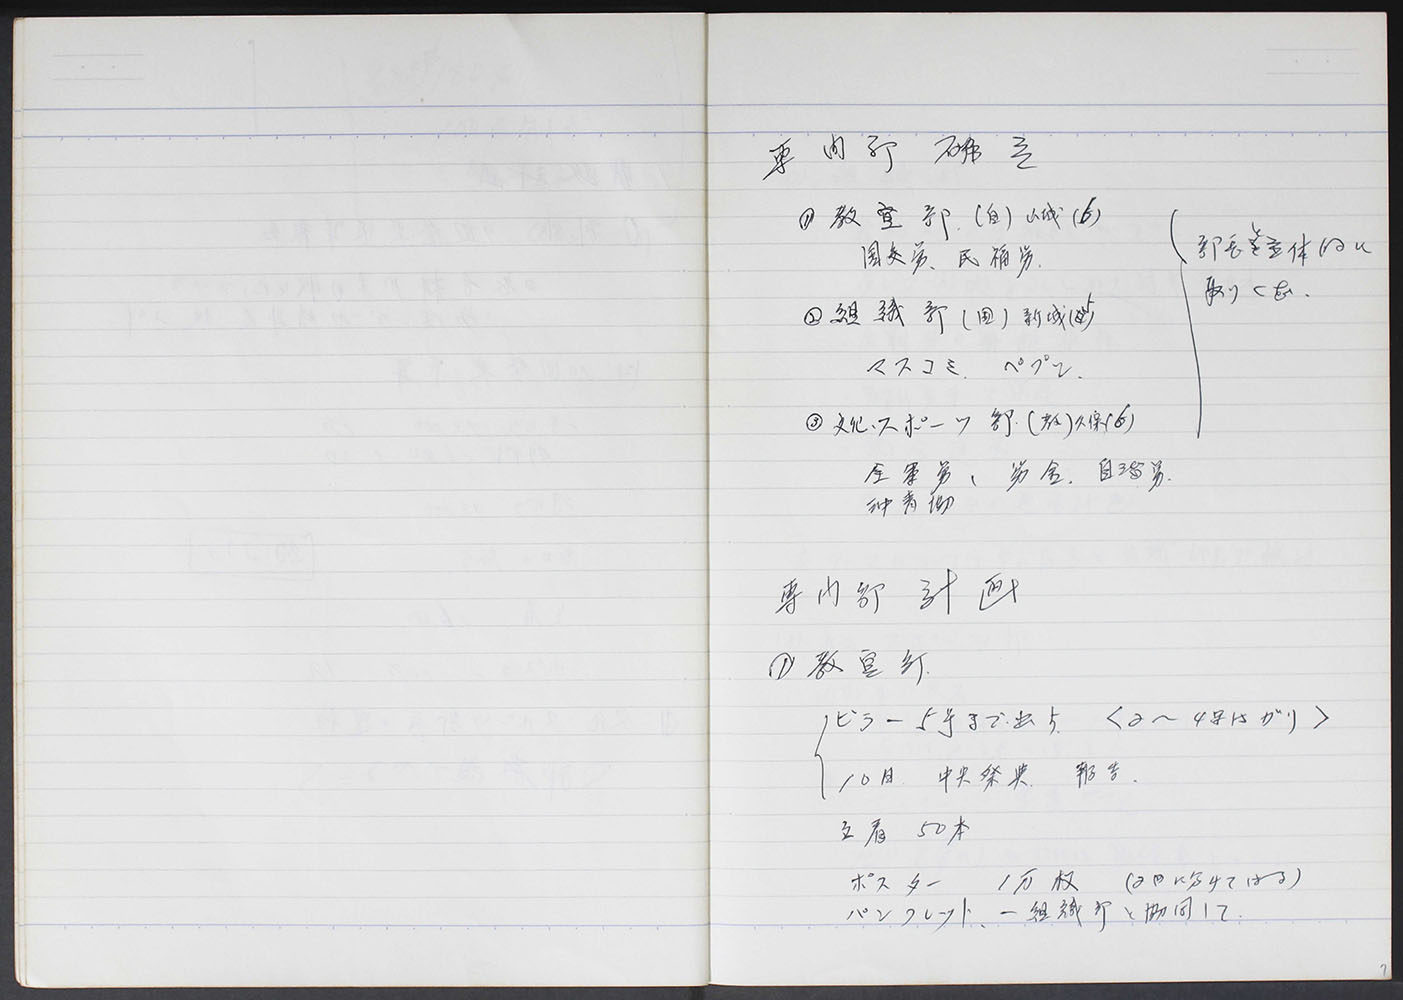 専門部 確立
① 教宣部.(自)山城(6)
国交労、民福労.
部長を主体的に
取りくむ.
② 組織部(国)新城(5)
マスコミ. ペプシ.
③ 文化.スポーツ部.(教)久保(6)
全軍労、労金.自治労.
沖青協
専門部 計画
① 教宣部.
ビラー5号まで出す. <2〜4号はガリ>
10日. 中央祭典. 報告.
立看 50本
ポスター 1万枚 (2回に分けてはる)
パンフレット、ー組織部と協同して.
7